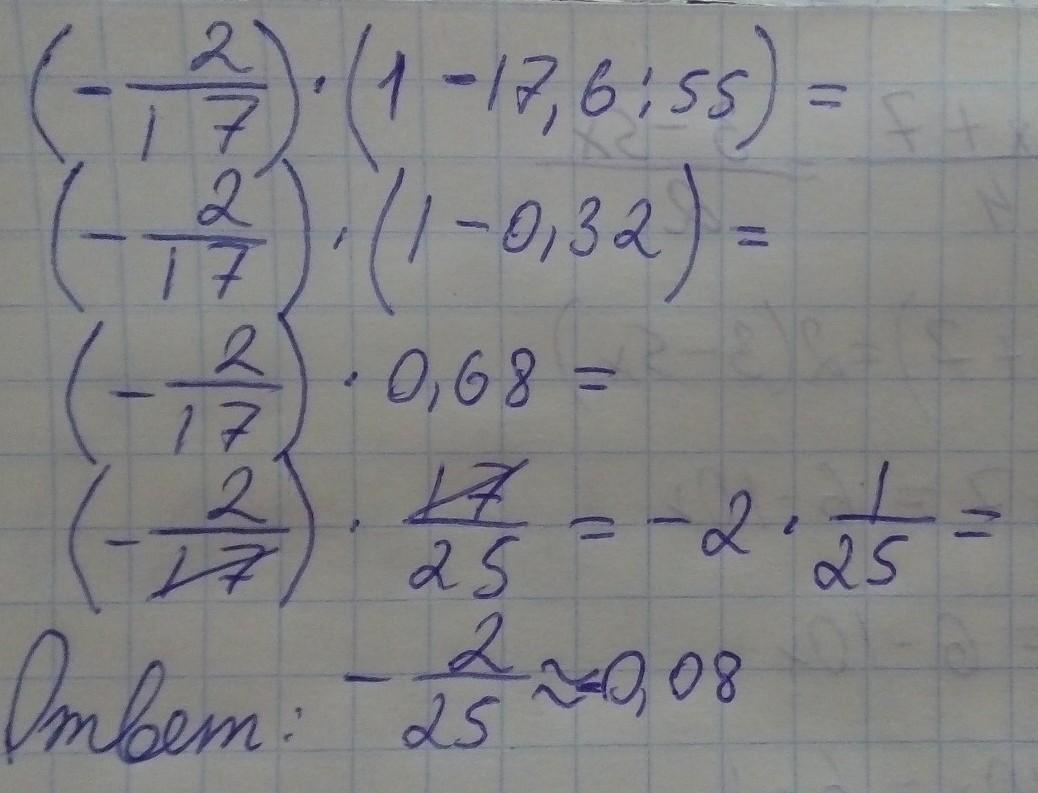 (-2/17)·(1-17,6:55)=
(-2/17)·(1-0,32)=
(-2/17)·0,68=
(-2/17)·17/25=-2·1/25=
Ответ: -2/25≈-0,08